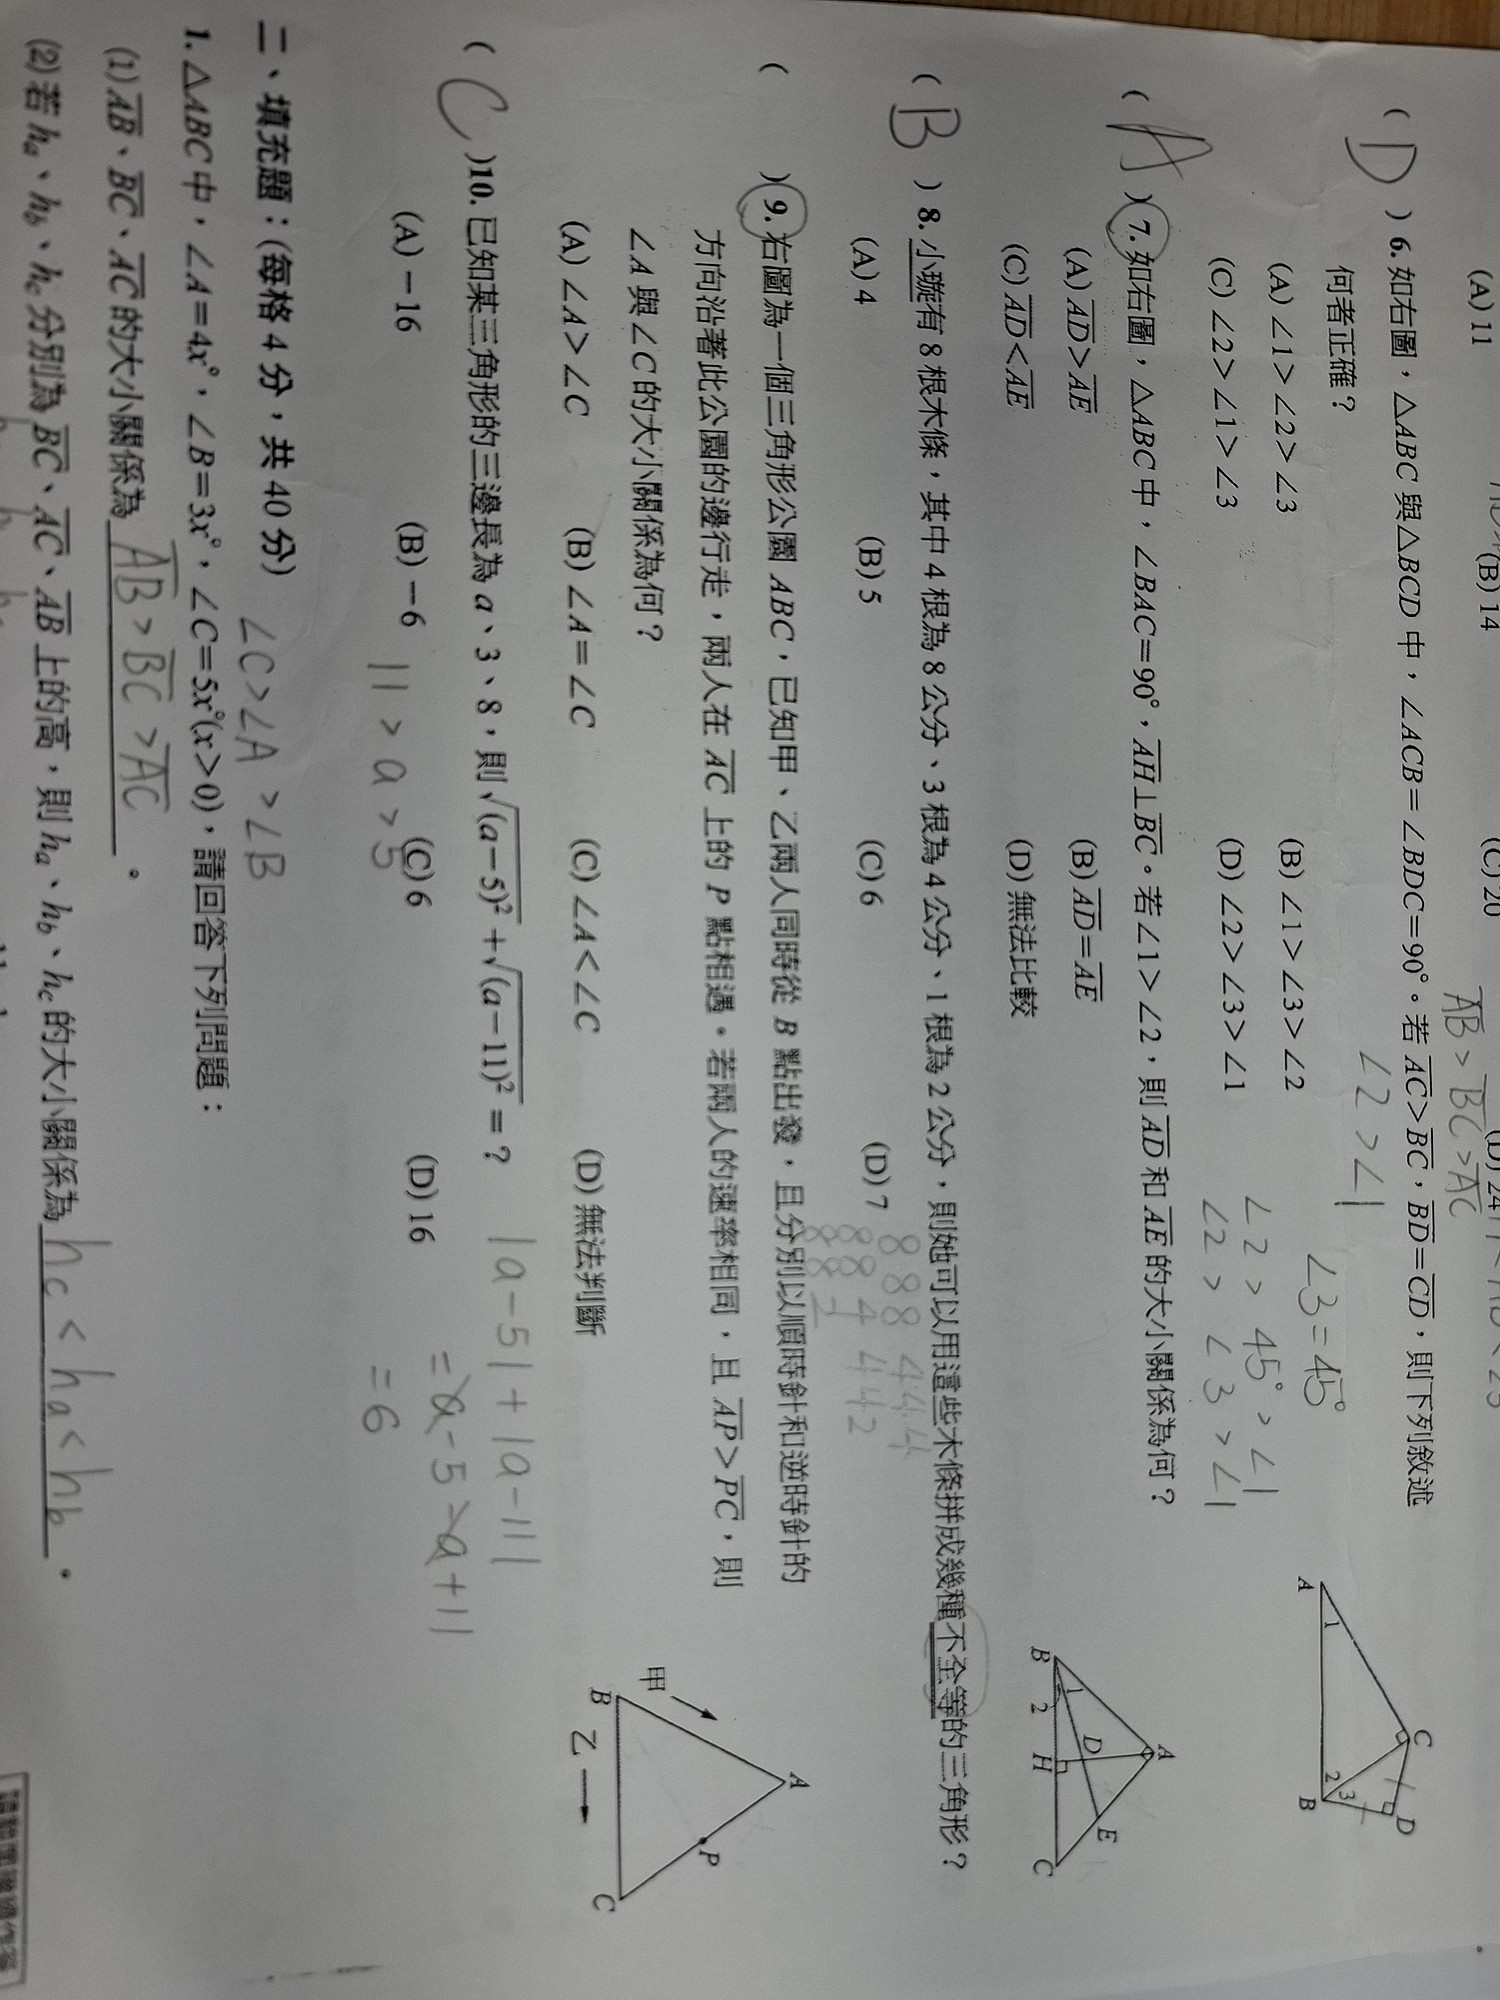 (A) 11
(B) 14
(C) 20
(D) 24
AB > BC > AC
( D ) 6. 如右圖，△ABC 與△BCD 中，∠ACB＝∠BDC＝90°。若 AC＞BC，BD＝CD，則下列敘述
何者正確？
∠2 > ∠1
∠3 = 45°
(A) ∠1＞∠2＞∠3
(B) ∠1＞∠3＞∠2
∠2 > 45° > ∠1
(C) ∠2＞∠1＞∠3
(D) ∠2＞∠3＞∠1
∠2 > ∠3 > ∠1
A
1
C
2
3
B
D
( A ) 7. 如右圖，△ABC 中，∠BAC＝90°，AH⊥BC。若∠1＞∠2，則 AD 和 AE 的大小關係為何？
(A) AD＞AE
(B) AD＝AE
(C) AD＜AE
(D) 無法比較
A
B
1
2
D
H
E
C
( B ) 8. 小璇有 8 根木條，其中 4 根為 8 公分、3 根為 4 公分、1 根為 2 公分，則她可以用這些木條拼成幾種不全等的三角形？
(A) 4
(B) 5
(C) 6
(D) 7
8 8 8 4 4 4
8 8 4 4 4 2
8 8 2
( ) 9. 右圖為一個三角形公園 ABC，已知甲、乙兩人同時從 B 點出發，且分別以順時針和逆時針的
方向沿著此公園的邊行走，兩人在 AC 上的 P 點相遇。若兩人的速率相同，且 AP＞PC，則
∠A 與∠C 的大小關係為何？
(A) ∠A＞∠C
(B) ∠A＝∠C
(C) ∠A＜∠C
(D) 無法判斷
A
P
甲
B
乙
C
( C ) 10. 已知某三角形的三邊長為 a、3、8，則 √(a－5)² ＋ √(a－11)² ＝？
|a-5| + |a-11|
(A) －16
(B) －6
(C) 6
(D) 16
= a - 5 - a + 11
11 > a > 5
= 6
二、填充題：(每格 4 分，共 40 分)
∠C > ∠A > ∠B
1. △ABC 中，∠A＝4x°，∠B＝3x°，∠C＝5x°(x＞0)，請回答下列問題：
(1) AB、BC、AC 的大小關係為 AB > BC > AC 。
(2) 若 ha、hb、hc 分別為 BC、AC、AB 上的高，則 ha、hb、hc 的大小關係為 hc < ha < hb 。